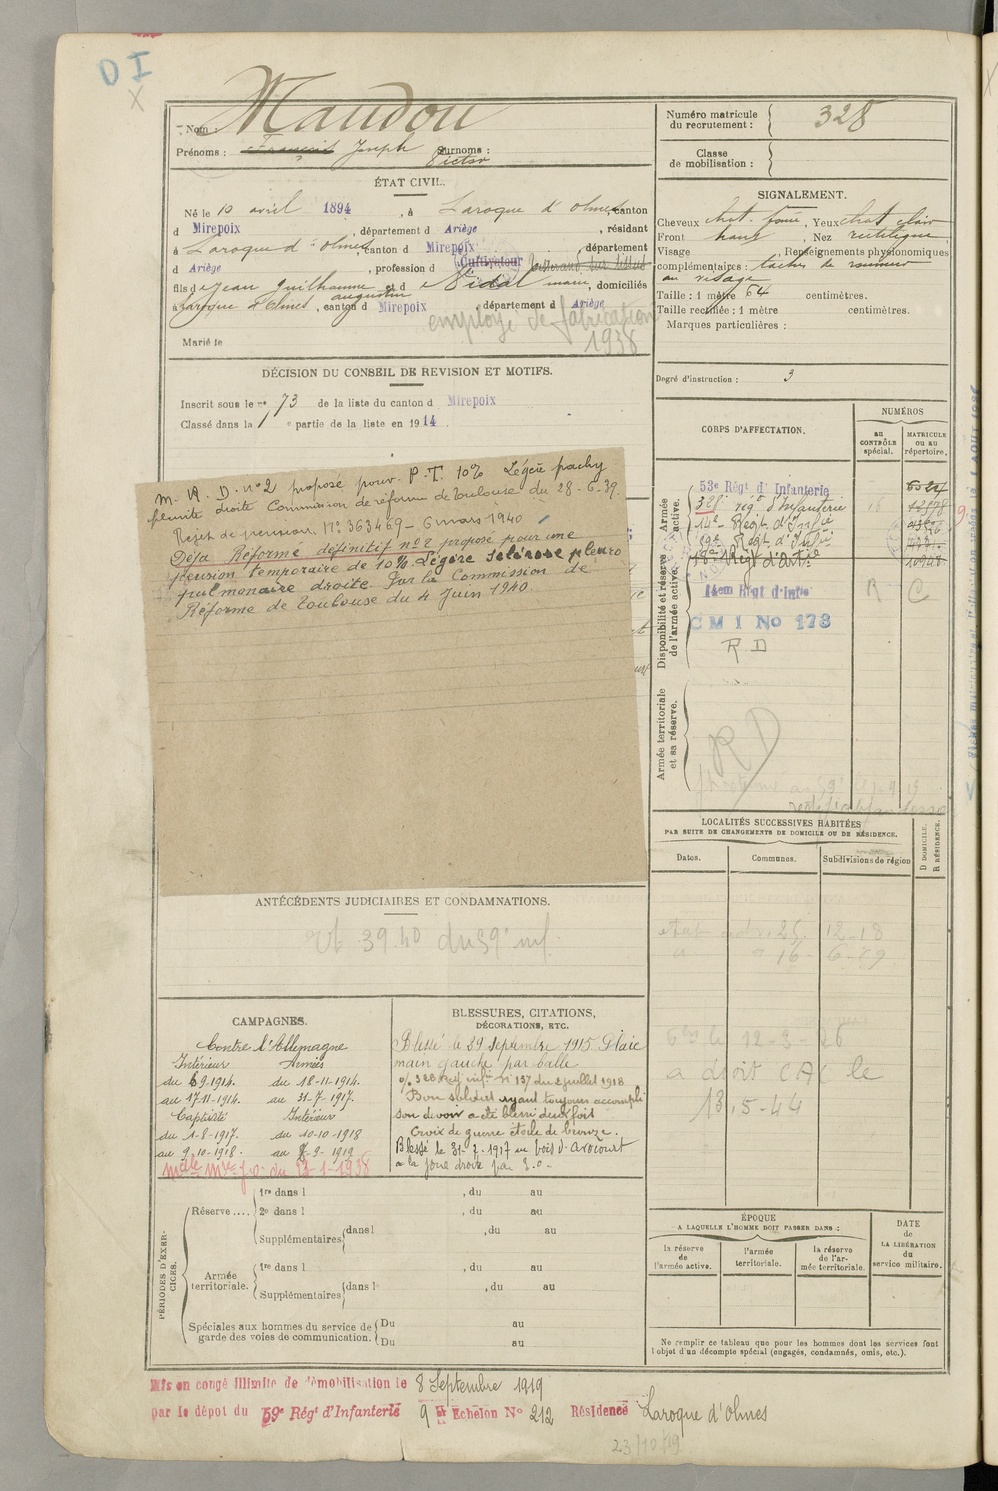 D I
Nom : Maudou
Prénoms : François Joseph Surnoms :
Victor
ÉTAT CIVIL.
Né le 10 avril 1894, à Laroque d'olmes canton
d Mirepoix, département d Ariège, résidant
à Laroque d'olmes, canton d Mirepoix, département
d Ariège, profession d Cultivateur
fils de Jean Guilhaume augustin et d Vidal marie, domiciliés
à Laroque d'Olmes, canton d Mirepoix département d Ariège
employé de fabrication
1938
Marié le
DÉCISION DU CONSEIL DE REVISION ET MOTIFS.
Inscrit sous le n° 73 de la liste du canton d Mirepoix
Classé dans la 1e partie de la liste en 1914.
M. A. D. n°2 proposé pour P.T. 10% Légère pachy
pleurite droite Commission de réforme de Toulouse du 28-6-39.
Rejet de pension. N° 363469 – 6 mars 1940
Déjà Réformé définitif n°2 proposé pour une
pension temporaire de 10% Légère sclérose pleuro
pulmonaire droite par la Commission de
Réforme de Toulouse du 4 Juin 1940.
ANTÉCÉDENTS JUDICIAIRES ET CONDAMNATIONS.
39.40 du 59e inf.
CAMPAGNES.
Contre l'Allemagne
Intérieur Armées
du 6 9-1914. du 18-11-1914.
au 17-11-1914. au 31-7-1917.
Captivité Intérieur
du 1-8-1917. du 10-10-1918
au 9-10-1918. au 7-9-1919
BLESSURES, CITATIONS,
DÉCORATIONS, ETC.
Blessé le 29 Septembre 1915 Plaie
main gauche par balle
O/ 328 Reg inf n° 137 du 2 juillet 1918
Bon soldat ayant toujours accompli
son devoir a été blessé deux fois
Croix de guerre étoile de bronze.
Blessé le 31-7-1917 au bois d'avocourt
à la joue droite par E.O.
PÉRIODES D'EXERCICES.
Réserve .... 1re dans l , du au
2e dans l , du au
Supplémentaires dans l , du au
Armée territoriale. 1re dans l , du au
Supplémentaires dans l , du au
Spéciales aux hommes du service de garde des voies de communication. Du au
Du au
Numéro matricule du recrutement : 328
Classe de mobilisation :
SIGNALEMENT.
Cheveux chat. foncé, Yeux chat clair
Front haut, Nez rectiligne
Visage , Renseignements physionomiques
complémentaires : taches de rousseur
au visage
Taille : 1 mètre 64 centimètres.
Taille rectifiée : 1 mètre centimètres.
Marques particulières :
Degré d'instruction : 3
CORPS D'AFFECTATION.
NUMÉROS
au CONTRÔLE spécial.
MATRICULE ou au répertoire.
Disponibilité et réserve de l'armée active. Armée active.
53e Régt d'Infanterie
328e régt d'Infanterie
14e Régt. d'Infie
59e Régt. d'Infie
18e Régt d'Artie
14em Régt d'Infie R C
C M I No 173
R D
Armée territoriale et sa réserve.
R D
LOCALITÉS SUCCESSIVES HABITÉES
PAR SUITE DE CHANGEMENTS DE DOMICILE OU DE RÉSIDENCE.
Dates. Communes. Subdivisions de région
D DOMICILE.
R RÉSIDENCE.
12-18
16-6-19
12-3-26
a droit CAC le
13.5-44
ÉPOQUE
A LAQUELLE L'HOMME DOIT PASSER DANS :
la réserve de l'armée active.
l'armée territoriale.
la réserve de l'armée territoriale.
DATE de LA LIBÉRATION du service militaire.
Ne remplir ce tableau que pour les hommes dont les services font
l'objet d'un décompte spécial (engagés, condamnés, omis, etc.).
Mis en congé illimité de démobilisation le 8 Septembre 1919
par le dépot du 59e Régt d'Infanterie 9e Echelon N° 212 Résidence Laroque d'olmes
23/10/19